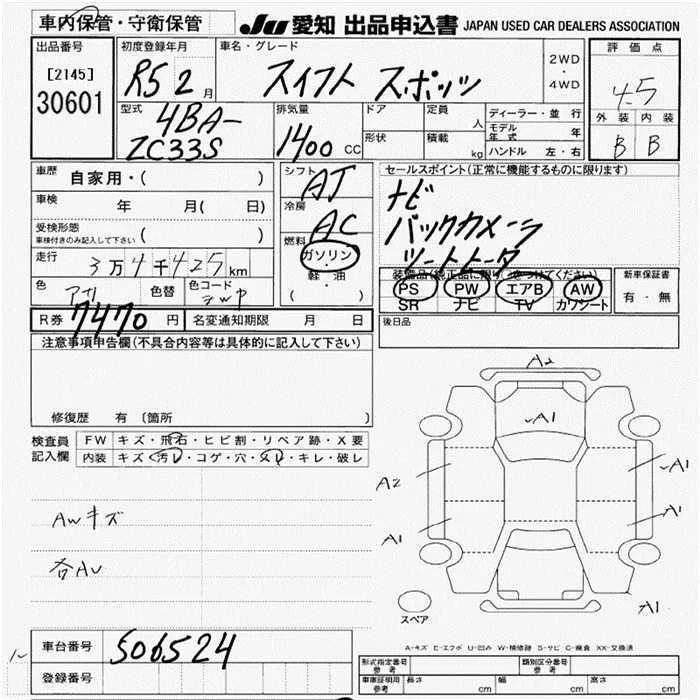 車内保管・守衛保管
JU 愛知 出品申込書 JAPAN USED CAR DEALERS ASSOCIATION
出品番号
[2145]
30601
初度登録年月
R5 2月
車名・グレード
スイフト スポーツ
2WD
・
4WD
評価点
4.5
外装 内装
B B
型式
4BA-
ZC33S
排気量
1400 CC
ドア
形状
定員 人
積載 kg
ディーラー・並行
モデル年式 年
ハンドル 左・右
車歴 自家用・( )
車検 年 月( 日)
受検形態
車検付きのみ記入して下さい ( )
走行 3万4千425km
色 色替 色コード
シフト AT
冷房 AC
燃料 ガソリン
・
軽・油
( )
セールスポイント(正常に機能するものに限ります)
ナビ
バックカメラ
ツートーン
装備品(純正品に限り○をつけてください)
PS PW エアB AW
SR ナビ TV カワシート
新車保証書
有・無
R券 7470円 名変通知期限 月 日
後日品
注意事項申告欄(不具合内容等は具体的に記入して下さい)
修復歴 有 〔箇所 〕
検査員
記入欄
FW キズ・飛石・ヒビ割・リペア跡・X要
内装 キズ・汚レ・コゲ・穴・スレ・キレ・破レ
AWキズ
各AU
A2
A1
A2
A1
A1
A1
A1
スペア
A-キズ E-エクボ U-凹み W-補修跡 S-サビ C-腐食 XX-交換済
車台番号 506524
登録番号
形式指定番号
参考
類別区分番号
参考
車庫証明用
参考
長さ cm 幅 cm 高さ cm